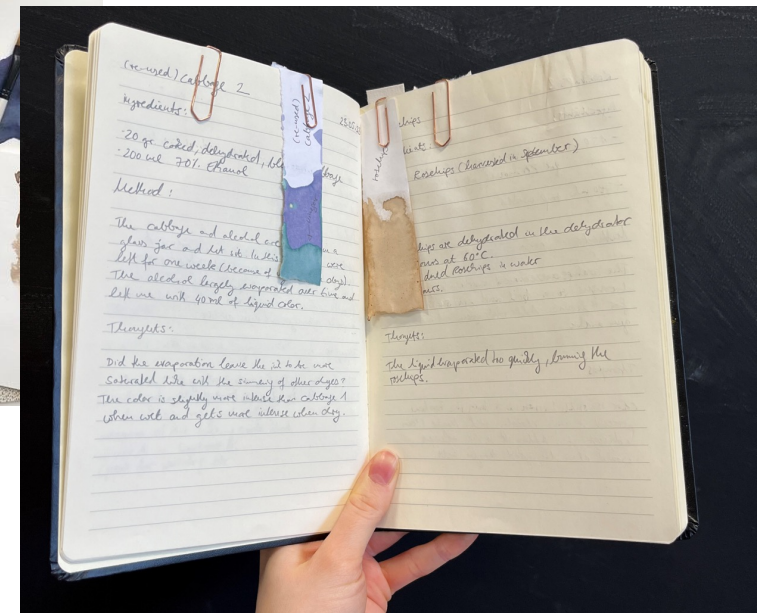 (re-used) Cabbage 2
Ingredients:
· 20 gr. coked, dehydrated, bl bbage
· 200 ml 70% Ethanol
Method:
The cabbage and alcohol a
glass jar and let sit. were
left for one week (because of days).
The alcohol largely evaporated over time and
left me with 40 ml of liquid color.
Thoughts:
Did the evaporation leave the to be more
saturated like with the of other dyes?
The color is slightly more intense than cabbage 1
when wet and gets more intense when dry.
(re-used)
Cabbage 2
rosehip
hips
Rosehips (harvested in September)
hips are dehydrated in the dehydrator
at 60°C.
Rosehips in water
Thoughts:
The liquid evaporated too quickly, burning the
rosehips.